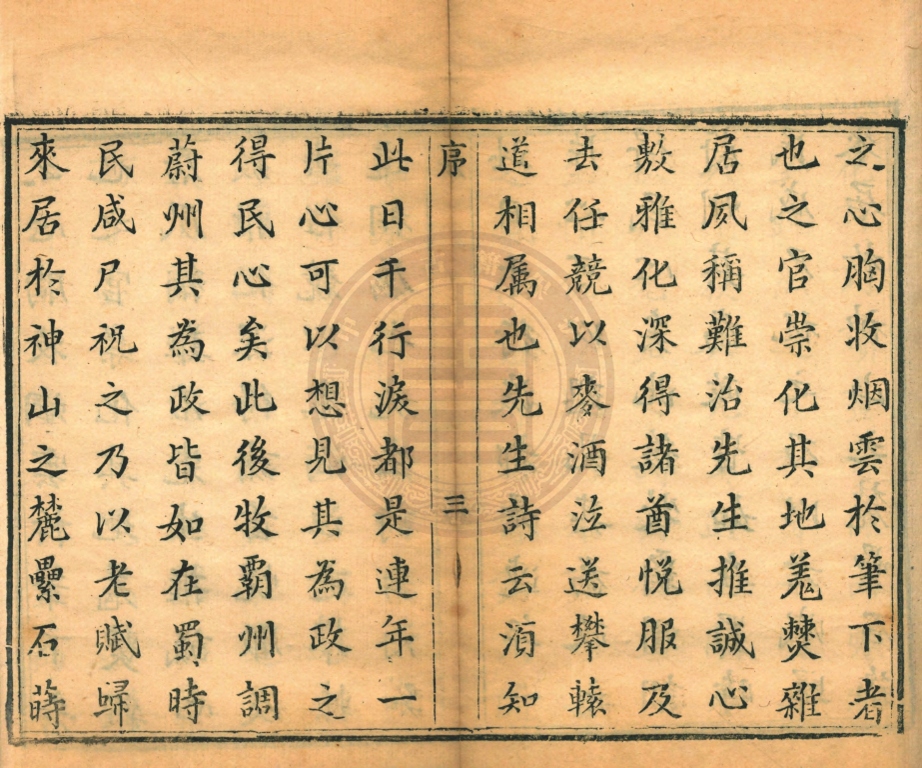 之心胸收烟雲於筆下者
也之官崇化其地羗僰雜
居夙稱難治先生推誠心
敷雅化深得諸酋悅服及
去任競以麥酒泣送攀轅
道相属也先生詩云湏知
序 三
此日千行淚都是連年一
片心可以想見其為政之
得民心矣此後牧霸州調
蔚州其為政皆如在蜀時
民咸尸祝之乃以老賦歸
來居於神山之麓壘石蒔